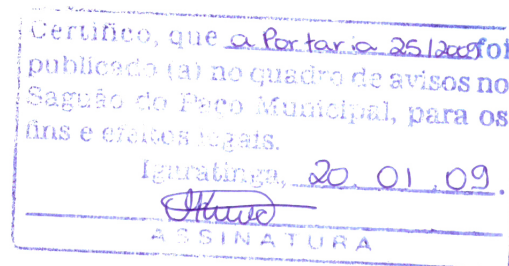 Certifico, que a Portaria 25/2009 foi
publicado (a) no quadro de avisos no
Saguão do Paço Municipal, para os
fins e efeitos legais.
Igaratinga, 20.01.09.
ASSINATURA